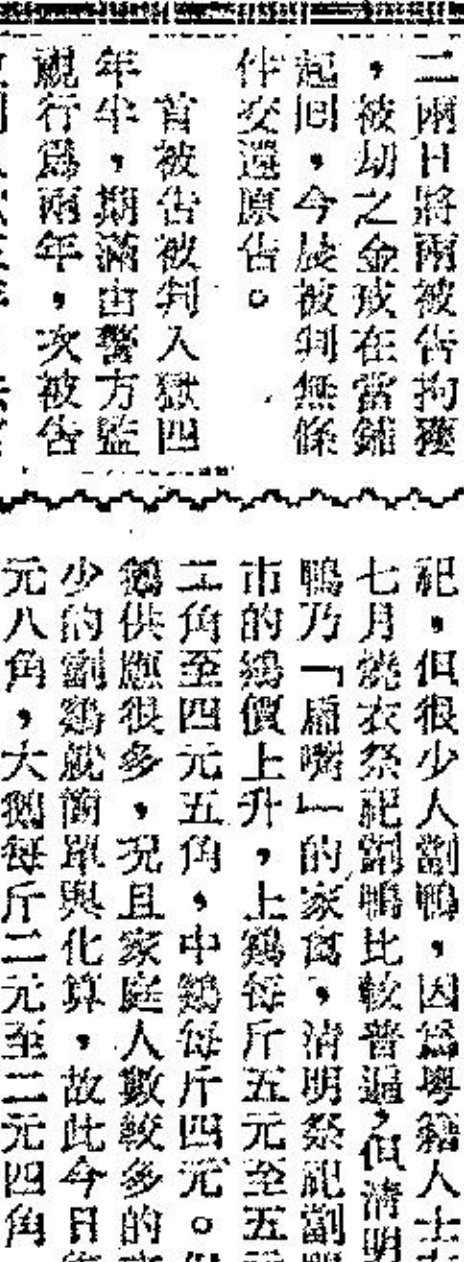 二兩日將兩被告拘獲
，被刧之金戒在當鋪
起回，今晨被判無條
件交還原告。
首被告被判入獄四
年半，期滿由警方監
視行爲兩年，次被告
祀，但很少人劏鴨，因爲粵籍人士
七月燒衣祭祀劏鴨比較普遍，但清明
鴨乃「扁嘴」的家禽，清明祭祀劏
市的鷄價上升，上鷄每斤五元至五
二角至四元五角，中鷄每斤四元。
鵝供應很多，況且家庭人數較多的
少的劏鷄就簡單與化算，故此今日
元八角，大鵝每斤二元至二元四角